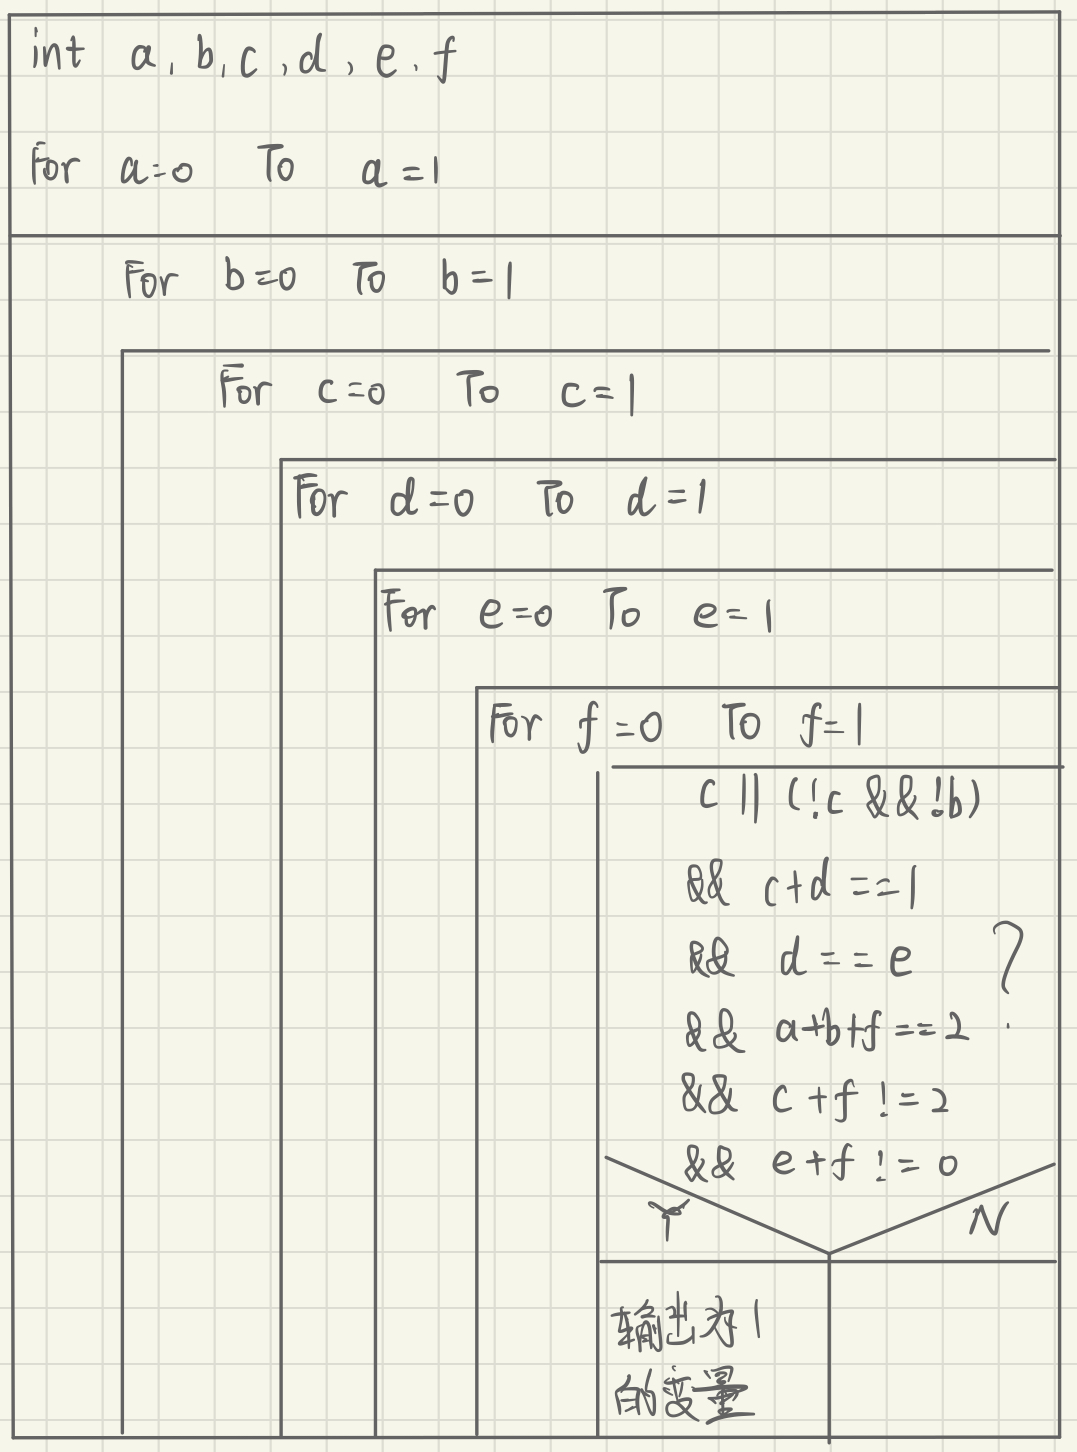 int a, b, c, d, e, f
For a=0 To a=1
For b=0 To b=1
For c=0 To c=1
For d=0 To d=1
For e=0 To e=1
For f=0 To f=1
c || (!c && !b)
&& c+d ==1
&& d == e ?
&& a+b+f ==2
&& c+f !=2
&& e+f != 0
Y N
输出为1
的变量